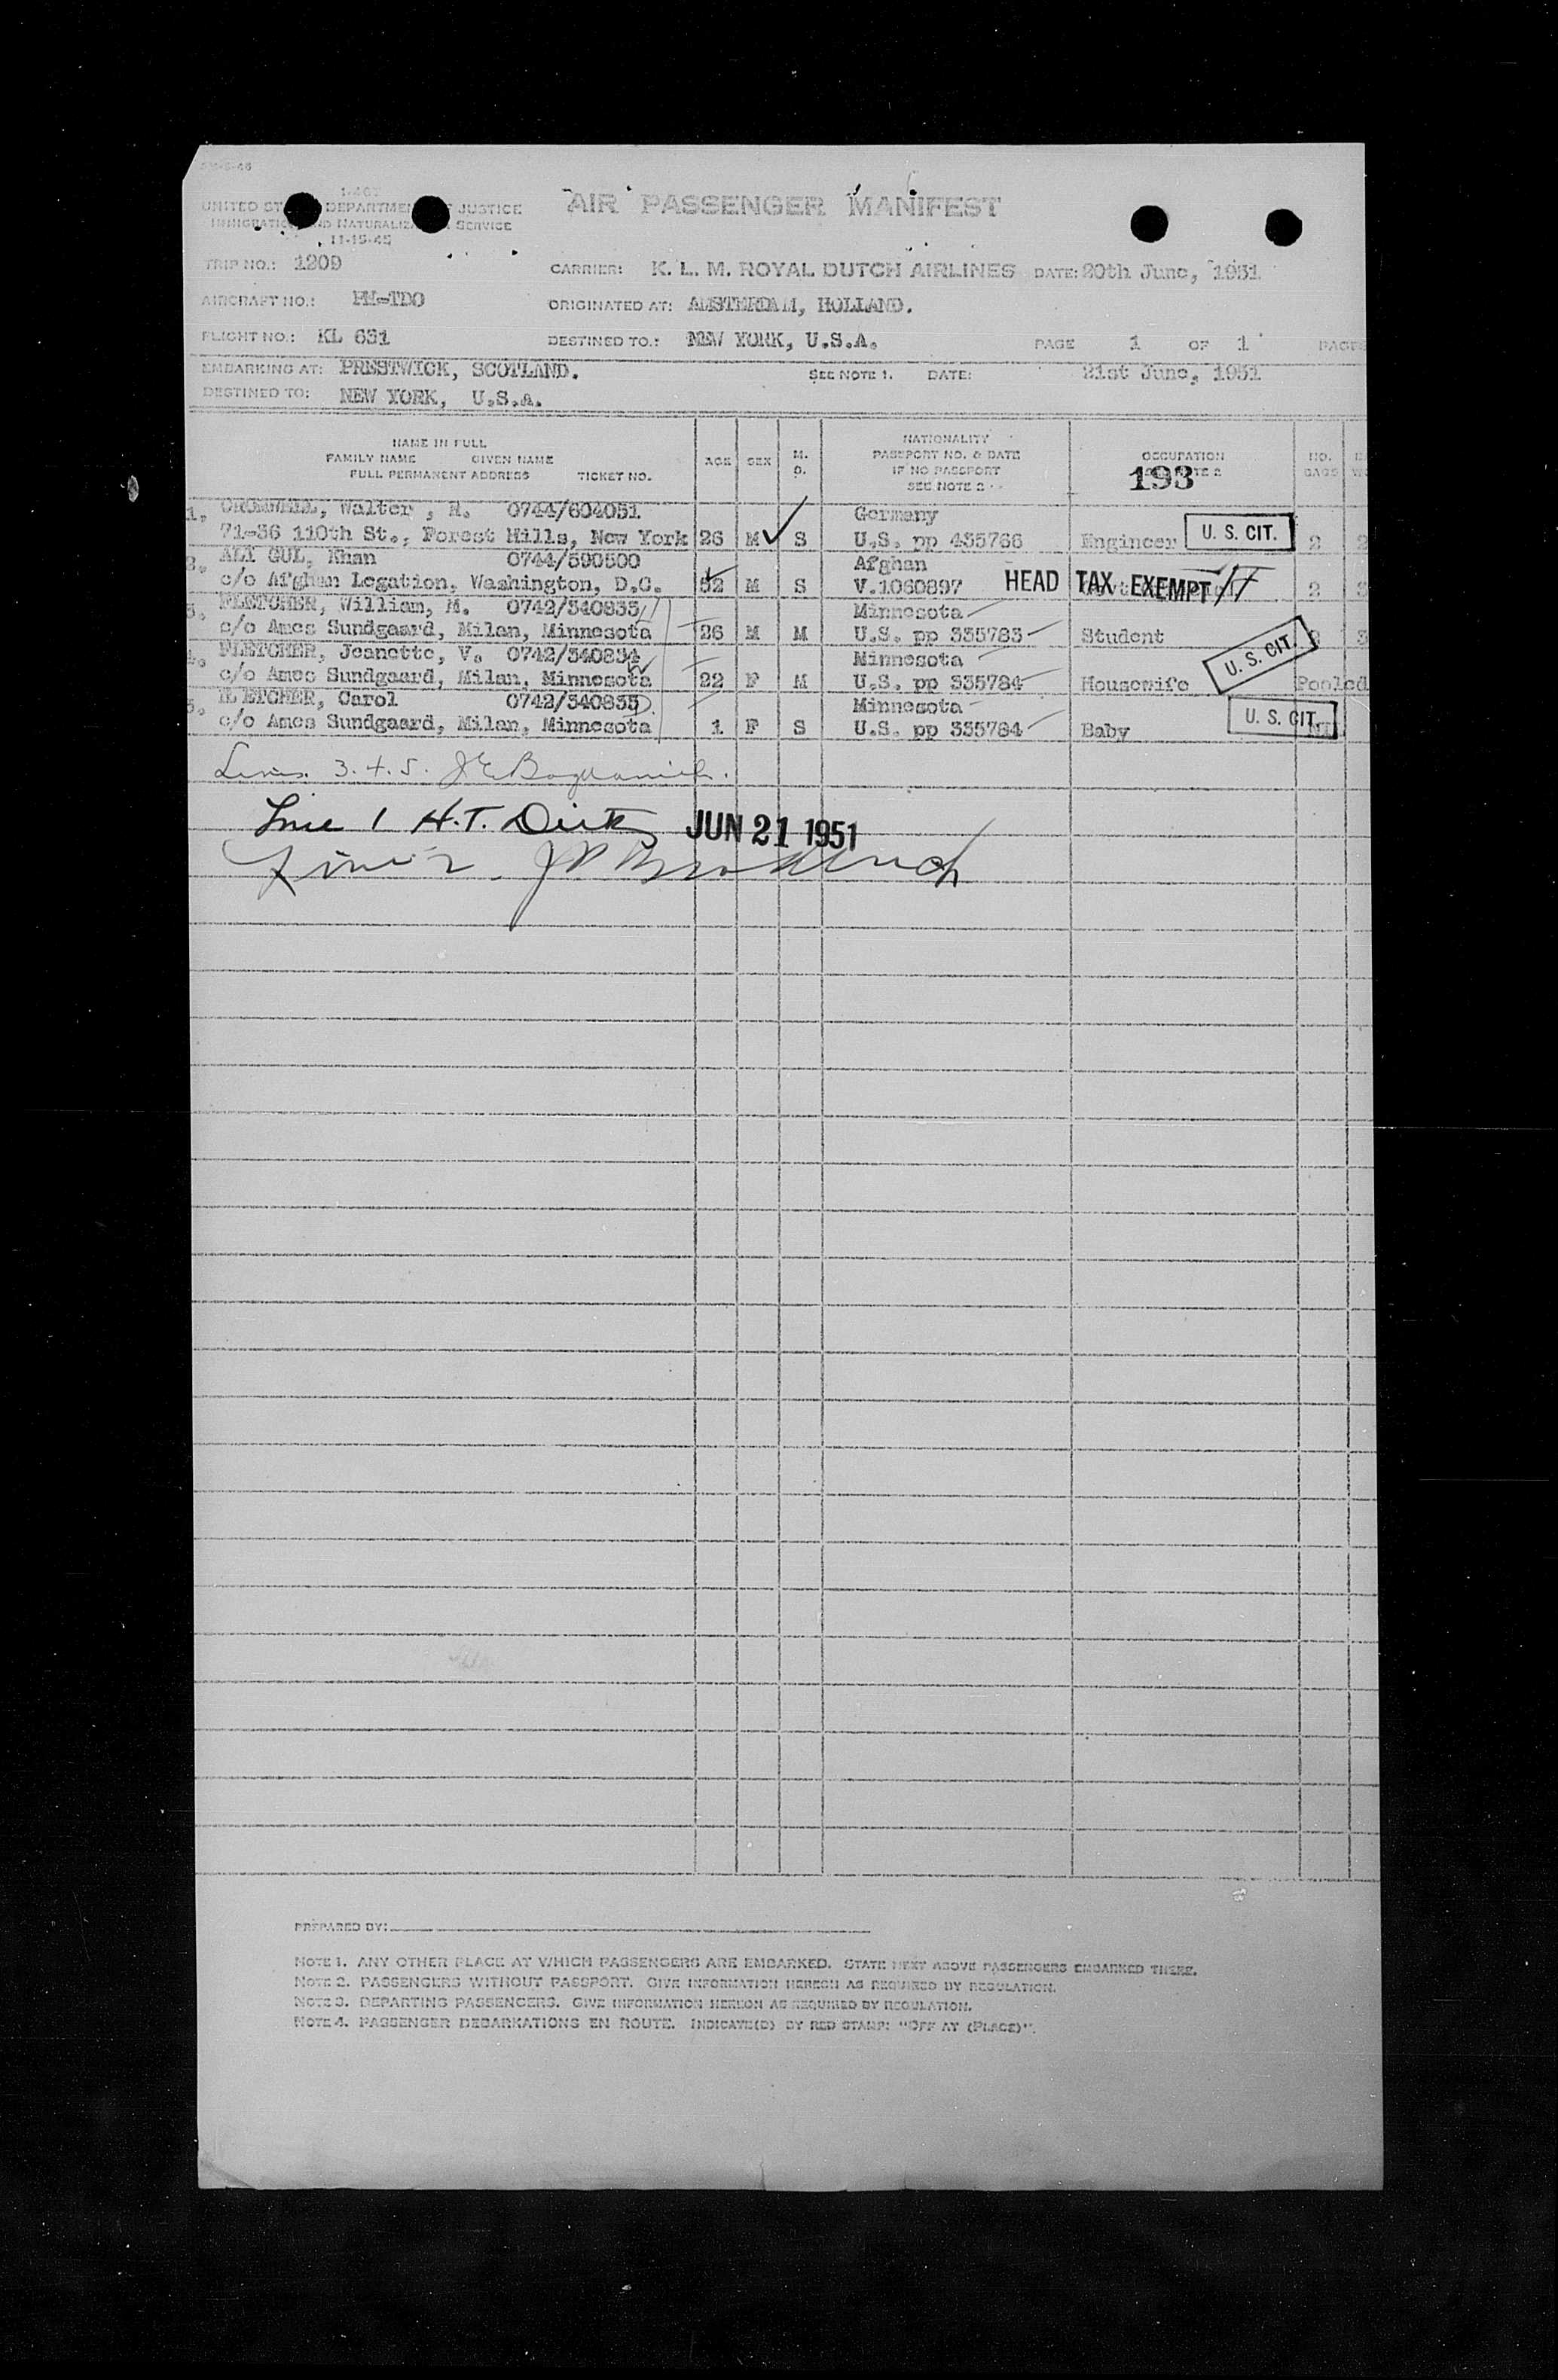 AIR PASSENGER MANIFEST
UNITED ST DEPARTMEN JUSTICE
SERVICE
11-15-45
TRIP NO.: 1209
CARRIER: K. L. M. ROYAL DUTCH AIRLINES DATE: 20th June, 1951
AIRCRAFT NO.: PH-TDO
ORIGINATED AT: AMSTERDAM, HOLLAND.
FLIGHT NO.: KL 631
DESTINED TO.: NEW YORK, U.S.A. PAGE 1 OF 1 PAGES
EMBARKING AT: PRESTWICK, SCOTLAND. SEE NOTE 1. DATE: 21st June, 1951
DESTINED TO: NEW YORK, U.S.A.
NAME IN FULL
FAMILY NAME GIVEN NAME
FULL PERMANENT ADDRESS TICKET NO.
AGE SEX M. S.
NATIONALITY
PASSPORT NO. & DATE
IF NO PASSPORT
SEE NOTE 2
OCCUPATION
193
NO. BAGS
1. CROMWELL, Walter , H. 0744/604051 Germany
71-36 110th St., Forest Hills, New York 26 M S U.S. pp 435766 Engineer U. S. CIT. 2 2
2. ALI GUL, Khan 0744/590500 Afghan
c/o Afghan Legation, Washington, D.C. 52 M S V.1060897 HEAD TAX EXEMPT 2 3
3. FLETCHER, William, H. 0742/340833 Minnesota
c/o Amos Sundgaard, Milan, Minnesota 26 M M U.S. pp 335783 Student 3
4. FLETCHER, Jeanette, V. 0742/340834 Minnesota
c/o Amos Sundgaard, Milan, Minnesota 22 F M U.S. pp 335784 Housewife U. S. CIT. Pooled
5. FLETCHER, Carol 0742/340835 Minnesota
c/o Amos Sundgaard, Milan, Minnesota 1 F S U.S. pp 335784 Baby U. S. CIT.
Lines 3. 4. 5.
Line 1 H.T. JUN 21 1951
Line 2
PREPARED BY:
NOTE 1. ANY OTHER PLACE AT WHICH PASSENGERS ARE EMBARKED. STATE NEXT ABOVE PASSENGERS EMBARKED THERE.
NOTE 2. PASSENGERS WITHOUT PASSPORT. GIVE INFORMATION HEREON AS REQUIRED BY REGULATION.
NOTE 3. DEPARTING PASSENGERS. GIVE INFORMATION HEREON AS REQUIRED BY REGULATION.
NOTE 4. PASSENGER DEBARKATIONS EN ROUTE. INDICATE(D) BY RED STAMP: "OFF AT (PLACE)".